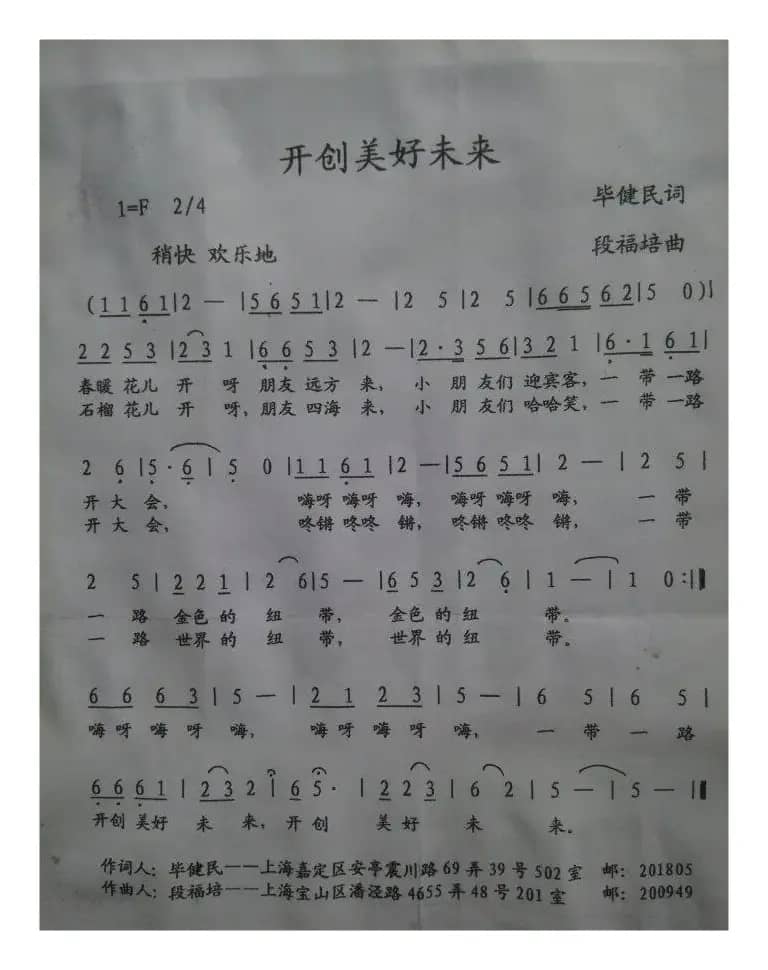 开创美好未来
1=F 2/4
毕健民词
稍快 欢乐地
段福培曲
(1 1 6 1|2 — |5 6 5 1|2 — |2 5 |2 5 |6 6 5 6 2|5 0)|
2 2 5 3 |2 3 1 |6 6 5 3 |2 — |2·3 5 6|3 2 1 |6·1 6 1|
春暖 花儿 开 呀 朋友 远方 来, 小 朋 友们 迎宾客,一 带 一路
石榴 花儿 开 呀,朋友 四海 来, 小 朋 友们 哈哈笑,一 带 一路
2 6 |5·6 | 5 0 |1 1 6 1 |2 —|5 6 5 1| 2 — | 2 5 |
开 大 会, 嗨呀 嗨呀 嗨, 嗨呀 嗨呀 嗨, 一 带
开 大 会, 咚锵 咚咚 锵, 咚锵 咚咚 锵, 一 带
2 5 | 2 2 1 | 2 6|5 — |6 5 3 |2 6 |1 — |1 0:‖
一 路 金色 的 纽 带, 金色 的 纽 带。
一 路 世界 的 纽 带, 世界 的 纽 带。
6 6 6 3 | 5 — | 2 1 2 3 | 5 — | 6 5 | 6 5 |
嗨 呀 嗨 呀 嗨, 嗨 呀 嗨 呀 嗨, 一 带 一 路
6 6 6 1 | 2 3 2 | 6 5· | 2 2 3 | 6 2 | 5 — | 5 — ‖
开创 美好 未 来,开 创 美 好 未 来。
作词人: 毕健民——上海嘉定区安亭震川路 69 弄 39 号 502 室 邮: 201805
作曲人: 段福培——上海宝山区潘泾路 4655 弄 48 号 201 室 邮: 200949